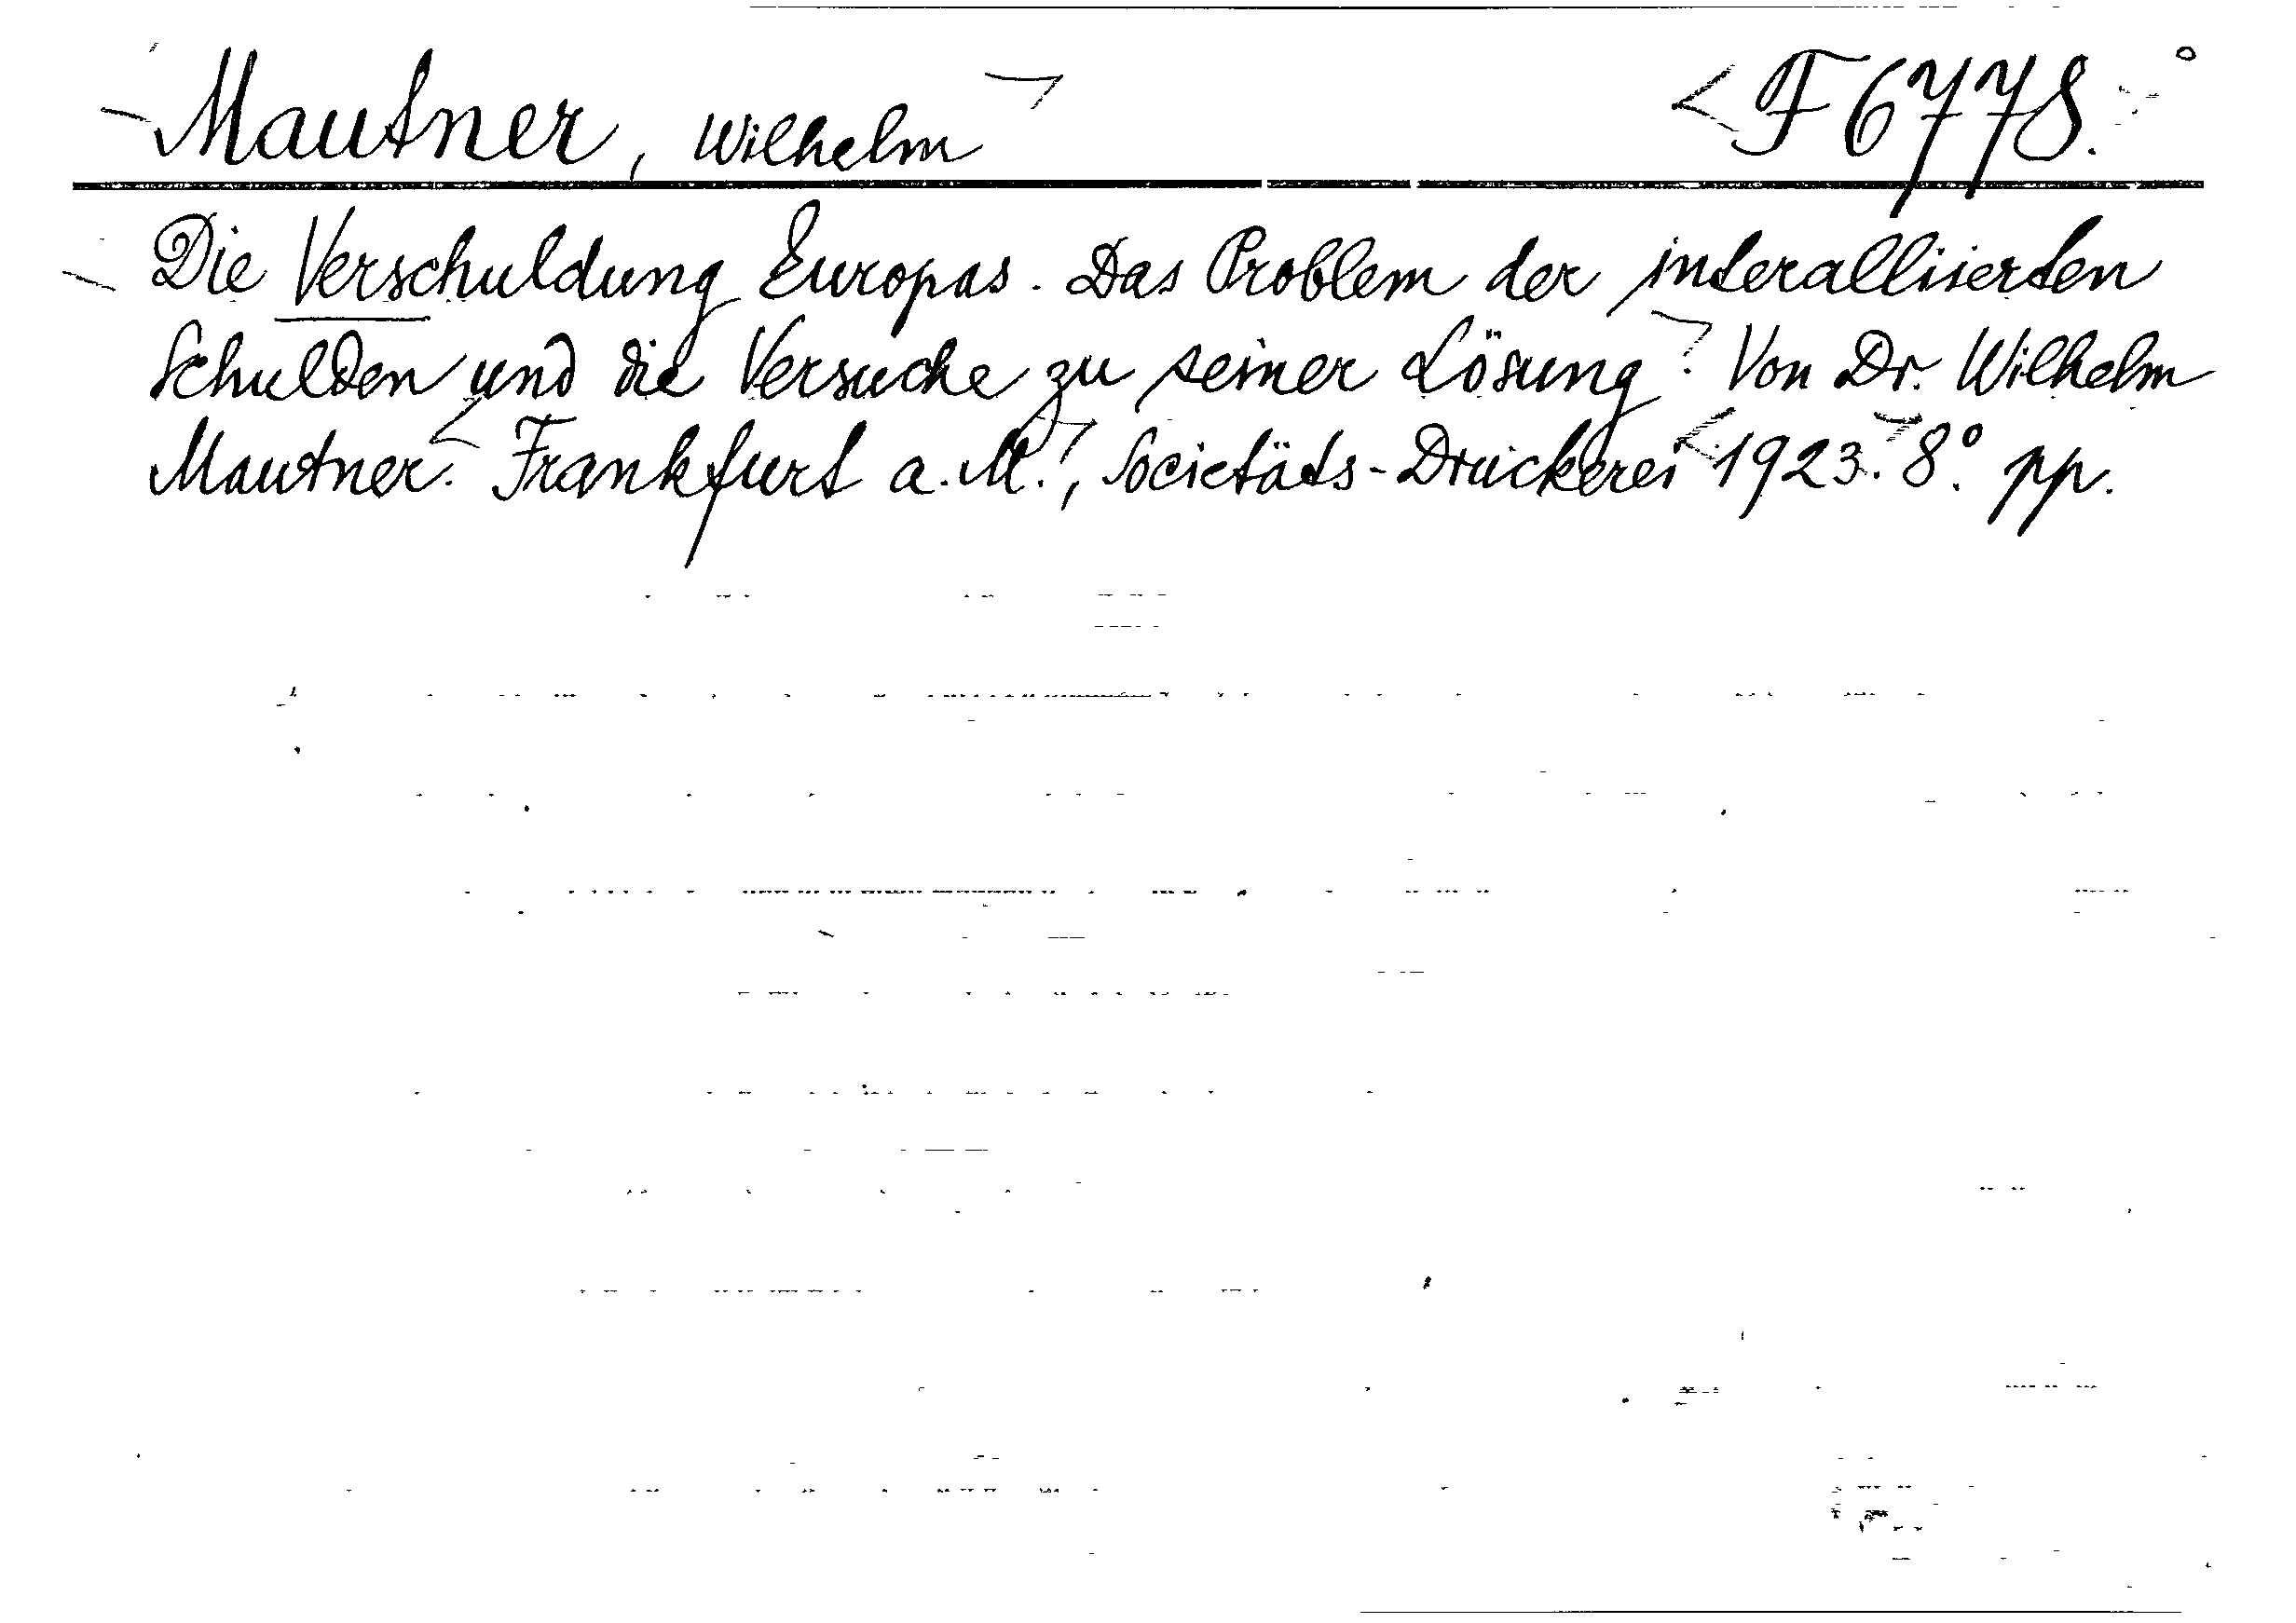 Mautner, Wilhelm F 6778.
Die Verschuldung Europas. Das Problem der interalliierten
Schulden und die Versuche zu seiner Lösung. Von Dr. Wilhelm
Mautner. Frankfurt a. M., Societäts-Druckerei 1923. 8°. pp.